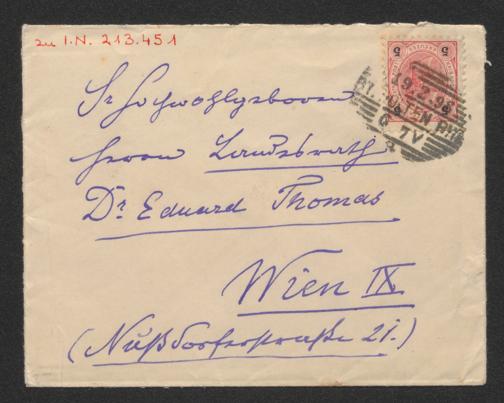 zu I.N. 213.451
5 5
19.2.96
ST. PÖLTEN
6-7V
Sr Hochwohlgeboren
Herrn Landesrath
Dr Eduard Thomas
Wien IX
(Nußdorferstraße 21.)